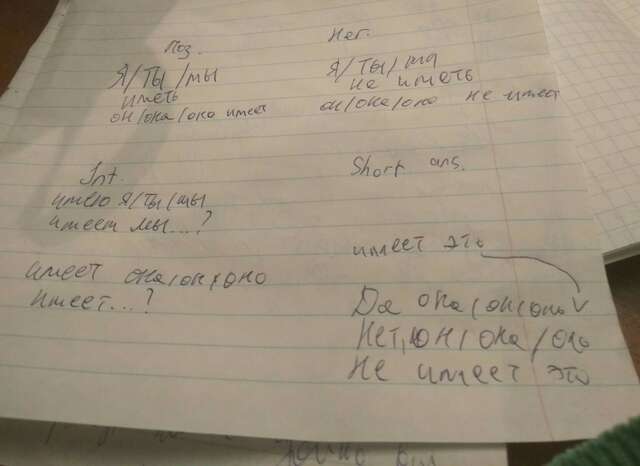 Поз.
Я/ты/мы
иметь
он/она/оно имеет
Нег.
Я/ты/мы
не иметь
он/она/оно не имеет
Int.
имею я/ты/мы
имеет мы...?
имеет она/он/оно
имеет...?
Short ans.
имеет это
Да она/он/оно
Нет, он/она/оно
не имеет это